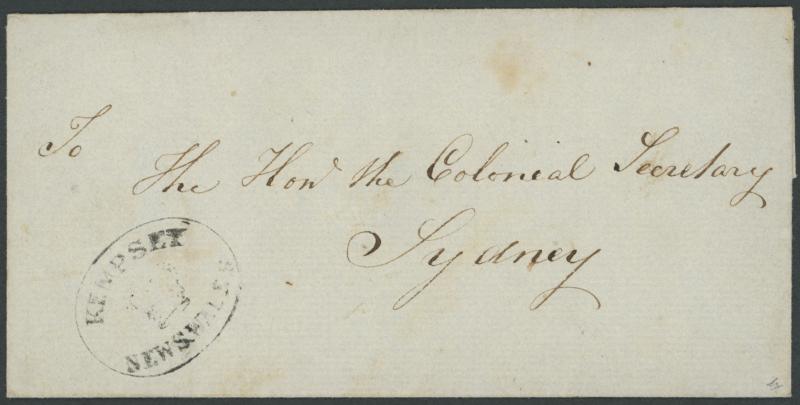 To
The Hond the Colonial Secretary
Sydney
KEMPSEY
NEW S WALES